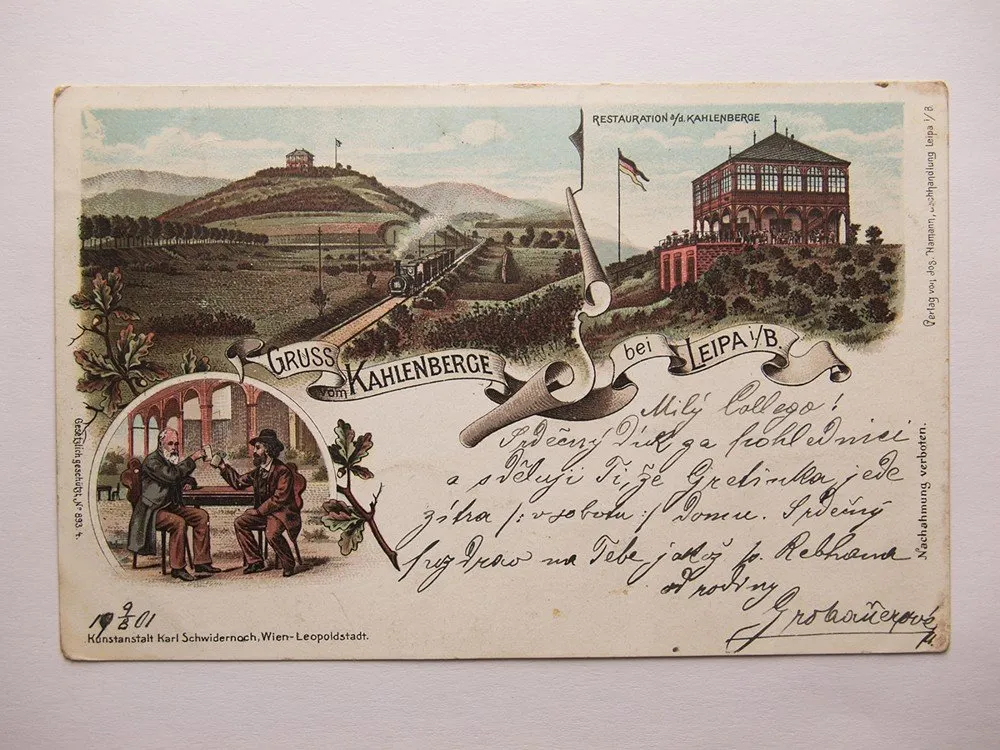 RESTAURATION a/d. KAHLENBERGE
GRUSS
vom KAHLENBERGE
bei LEIPA i/B.
Milý Collego!
Srdečný Dík za pohlednici
a sděluji Ti, že Gretinka jede
zítra /: v sobotu :/ domu. Srdečný
pozdrav na Tebe jakož p. Rebhana
od rodiny
19 9/5 01
Kunstanstalt Karl Schwidernoch, Wien-Leopoldstadt.
Gesetzlich geschützt, No 893.4.
Verlag von Jos. Hamann, Buchhandlung Leipa i/B
Nachahmung verboten.